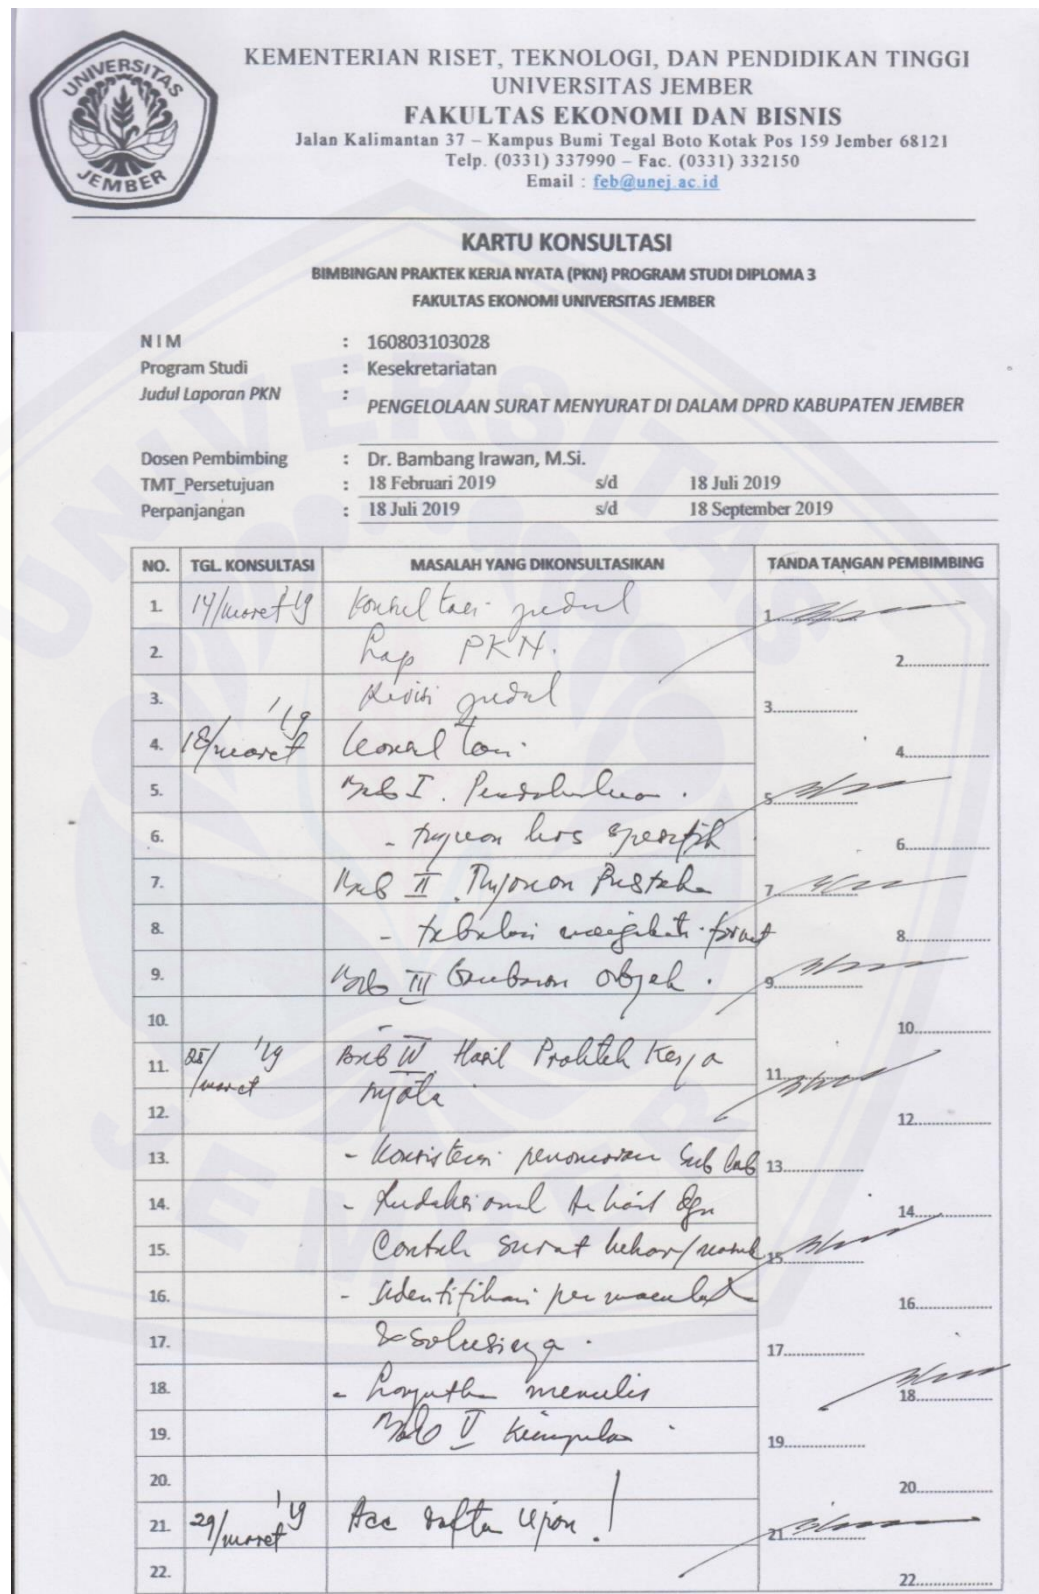 UNIVERSITAS
JEMBER
KEMENTERIAN RISET, TEKNOLOGI, DAN PENDIDIKAN TINGGI
UNIVERSITAS JEMBER
FAKULTAS EKONOMI DAN BISNIS
Jalan Kalimantan 37 – Kampus Bumi Tegal Boto Kotak Pos 159 Jember 68121
Telp. (0331) 337990 – Fac. (0331) 332150
Email : feb@unej.ac.id
KARTU KONSULTASI
BIMBINGAN PRAKTEK KERJA NYATA (PKN) PROGRAM STUDI DIPLOMA 3
FAKULTAS EKONOMI UNIVERSITAS JEMBER
NIM : 160803103028
Program Studi : Kesekretariatan
Judul Laporan PKN : PENGELOLAAN SURAT MENYURAT DI DALAM DPRD KABUPATEN JEMBER
Dosen Pembimbing : Dr. Bambang Irawan, M.Si.
TMT_Persetujuan : 18 Februari 2019 s/d 18 Juli 2019
Perpanjangan : 18 Juli 2019 s/d 18 September 2019
NO. TGL. KONSULTASI MASALAH YANG DIKONSULTASIKAN TANDA TANGAN PEMBIMBING
1. 14/maret '19 Konsultasi judul 1
2. Lap PKN. 2
3. Revisi judul 3
4. 18/maret '19 Konsultasi 4
5. Bab I. Pendahuluan. 5
6. - tujuan hrs spesifik 6
7. Bab II Tinjauan Pustaka 7
8. - tabulasi mengikuti format 8
9. Bab III Gambaran objek. 9
10. 10
11. '19 /maret Bab IV Hasil Praktek Kerja 11
12. nyata 12
13. - Konsistensi penomoran Sub bab 13
14. - Redaksional dgn 14
15. Contoh surat keluar/masuk 15
16. - Identifikasi 16
17. & solusinya. 17
18. - Lanjutkan menulis 18
19. Bab V Kesimpulan 19
20. 20
21. 29/maret '19 Acc daftar Ujian! 21
22. 22